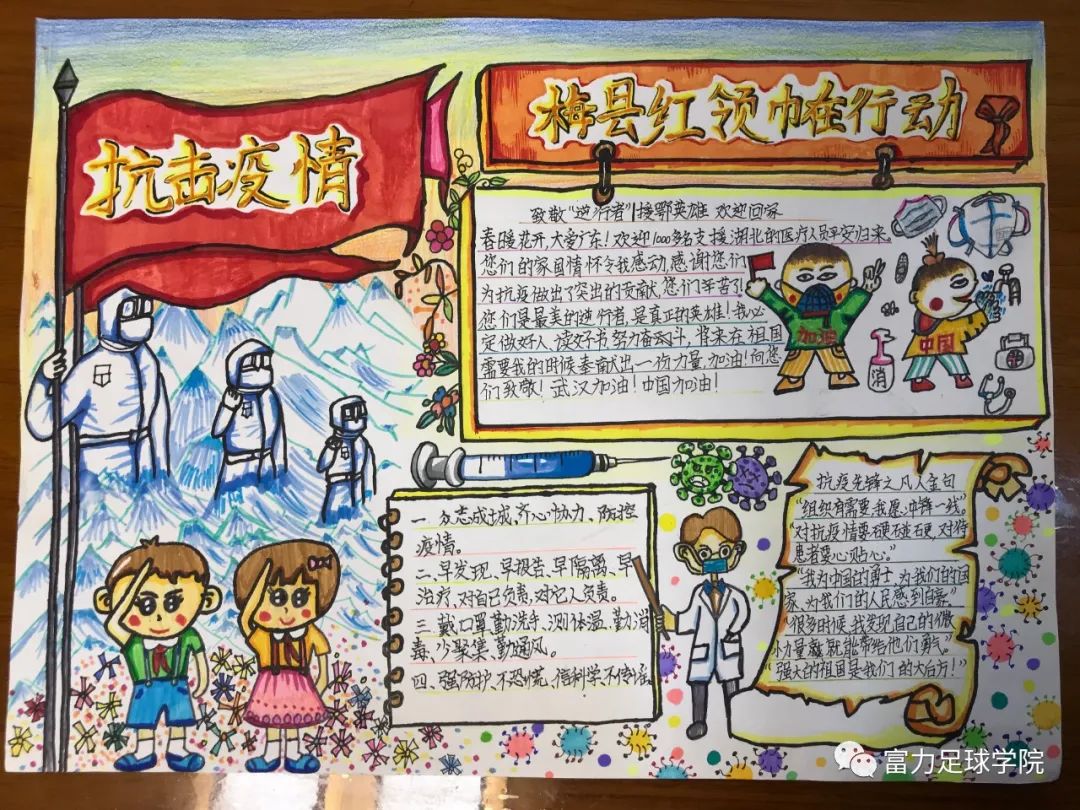 抗击疫情
梅县红领巾在行动
致敬"逆行者"援鄂英雄 欢迎回家
春暖花开,大爱广东!欢迎1000多名支援湖北的医疗人员平安归来。
您们的家国情怀令我感动,感谢您们
为抗疫做出了突出的贡献,您们辛苦了!
您们是最美的逆行者,是真正的英雄!我必
定做好人、读好书,努力奋斗,将来在祖国
需要我的时候奉献出一份力量,加油!向您
们致敬!武汉加油!中国加油!
加油
中国
消
一、众志成城、齐心协力、防控
疫情。
二、早发现、早报告、早隔离、早
治疗、对自己负责,对它人负责。
三、戴口罩、勤洗手、测体温、勤消
毒、少聚集、勤通风。
四、强防护、不恐慌、信科学、不传谣
抗疫先锋之凡人金句
"组织有需要,我愿冲锋一线。"
"对抗疫情要硬碰硬,对待
患者要心贴心。"
"我为中国的勇士,为我们的国
家,为我们的人民感到自豪"
"很多时候,我发现自己的微
小力量就能带给他们勇气。"
"强大的祖国是我们的大后方!"
富力足球学院